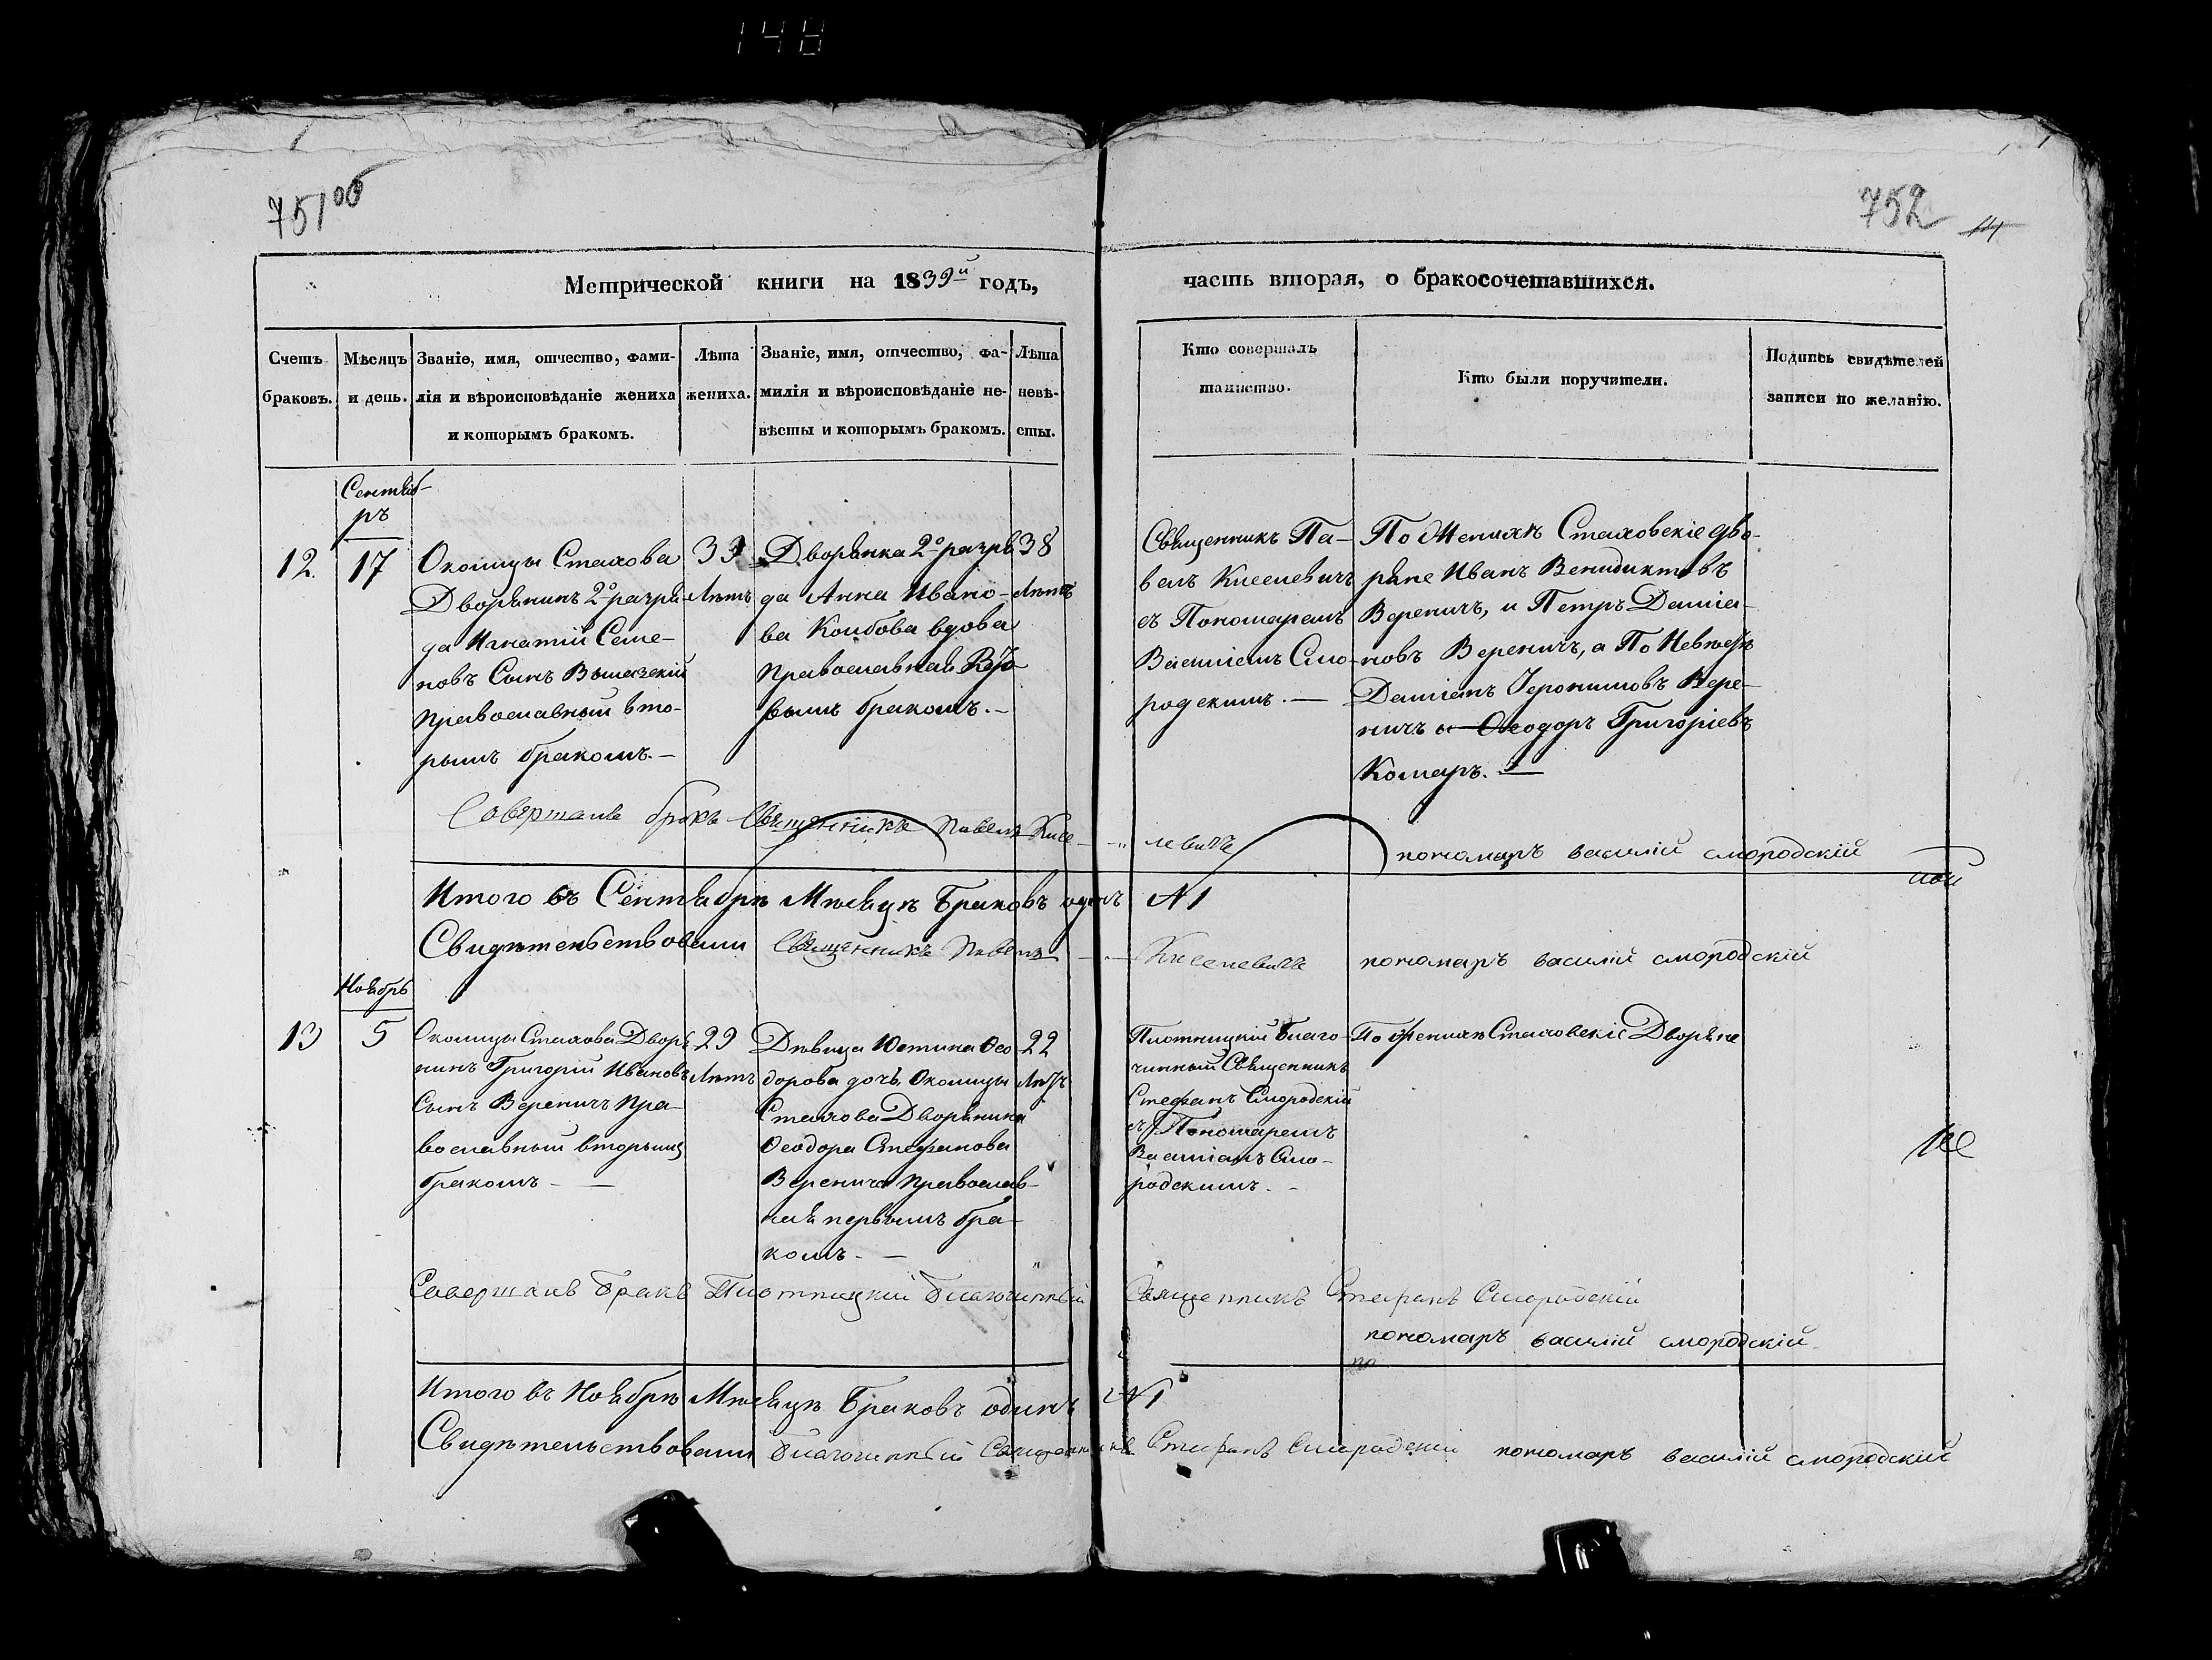 148
751 об
752
14
Метрической книги на 1839й годъ,
часть вторая, о бракосочетавшихся.
Счетъ
браковъ.
Мѣсяцъ
и день.
Званіе, имя, отчество, фами-
лія и вѣроисповѣданіе жениха
и которымъ бракомъ.
Лѣта
жениха.
Званіе, имя, отчество, фа-
милія и вѣроисповѣданіе не-
вѣсты и которымъ бракомъ.
Лѣта
невѣ-
сты.
Кто совершалъ
таинство.
Кто были поручители.
Подпись свидѣтелей
записи по желанію.
Сентяб-
рь
12.
17
Околицы Стахова
Дворянинъ 2о разря-
да Игнатій Семе-
новъ Сынъ Вылазскій
православный вто-
рымъ бракомъ. —
Лѣтъ
Дворянка 2о разря
да Анна Ивано-
ва Колбова вдова
православная
вымъ бракомъ. —
38
Лѣтъ
Священникъ Па-
велъ Киселевичъ
съ Пономаремъ
Василіемъ Смо-
родскимъ. —
По Женихѣ Стаховскіе дво-
ряне Иванъ Венидиктовъ
Вереничъ, и Петръ Даміа-
новъ Вереничъ, а По Невѣстѣ
Даміанъ Іеронимовъ Вере-
ничъ и Ѳеодоръ Григоріевъ
Комаръ. —
Совершалъ бракъ Священникъ Павелъ Кисе-
левичъ
пономаръ василій смородскій
Итого въ Сентябрѣ Мѣсяцѣ Браковъ одинъ N 1
Свидѣтельствовали Священникъ Павелъ — Киселевичъ пономаръ василій смородскій
Ноябрь
13
5
Околицы Стахова Дворя
нинъ Григорій Ивановъ
Сынъ Вереничъ пра-
вославный вторымъ
бракомъ — —
29
Лѣтъ
Дѣвица Юстина Ѳео
дорова дочь Околицы
Стахова Дворянина
Ѳеодора Стефанова
Веренича православ-
ная первымъ бра-
комъ. —
22
Лѣтъ
Плотницкій Благо-
чинный Священникъ
Стефанъ Смородскій
съ Пономаремъ
Василіемъ Смо-
родскимъ. —
По женихѣ Стаховскіе Дворяне
Совершалъ Бракъ Плотницкій Благочинный Священникъ Стефанъ Смородскій
пономаръ василій смородскій
Итого въ Ноябрѣ Мѣсяцѣ Браковъ одинъ N 1
Свидѣтельствовали Благочинный Священникъ Стефанъ Смородскій пономаръ василій смородскій